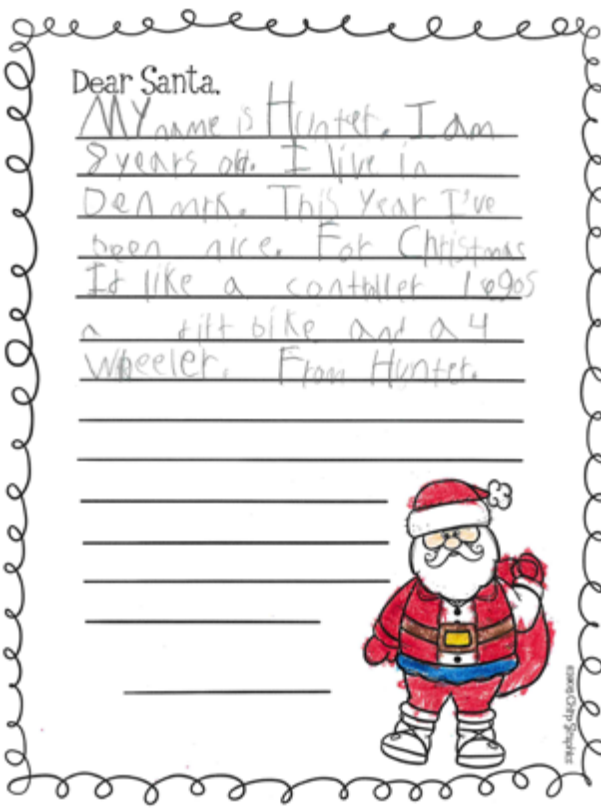 Dear Santa,
My name is Hunter. I am
8 years old. I live in
Denmrk. This year I've
been nice. For Christmas
I'd like a contrller legos
a dirt bike and a 4
Wheeler. From Hunter.